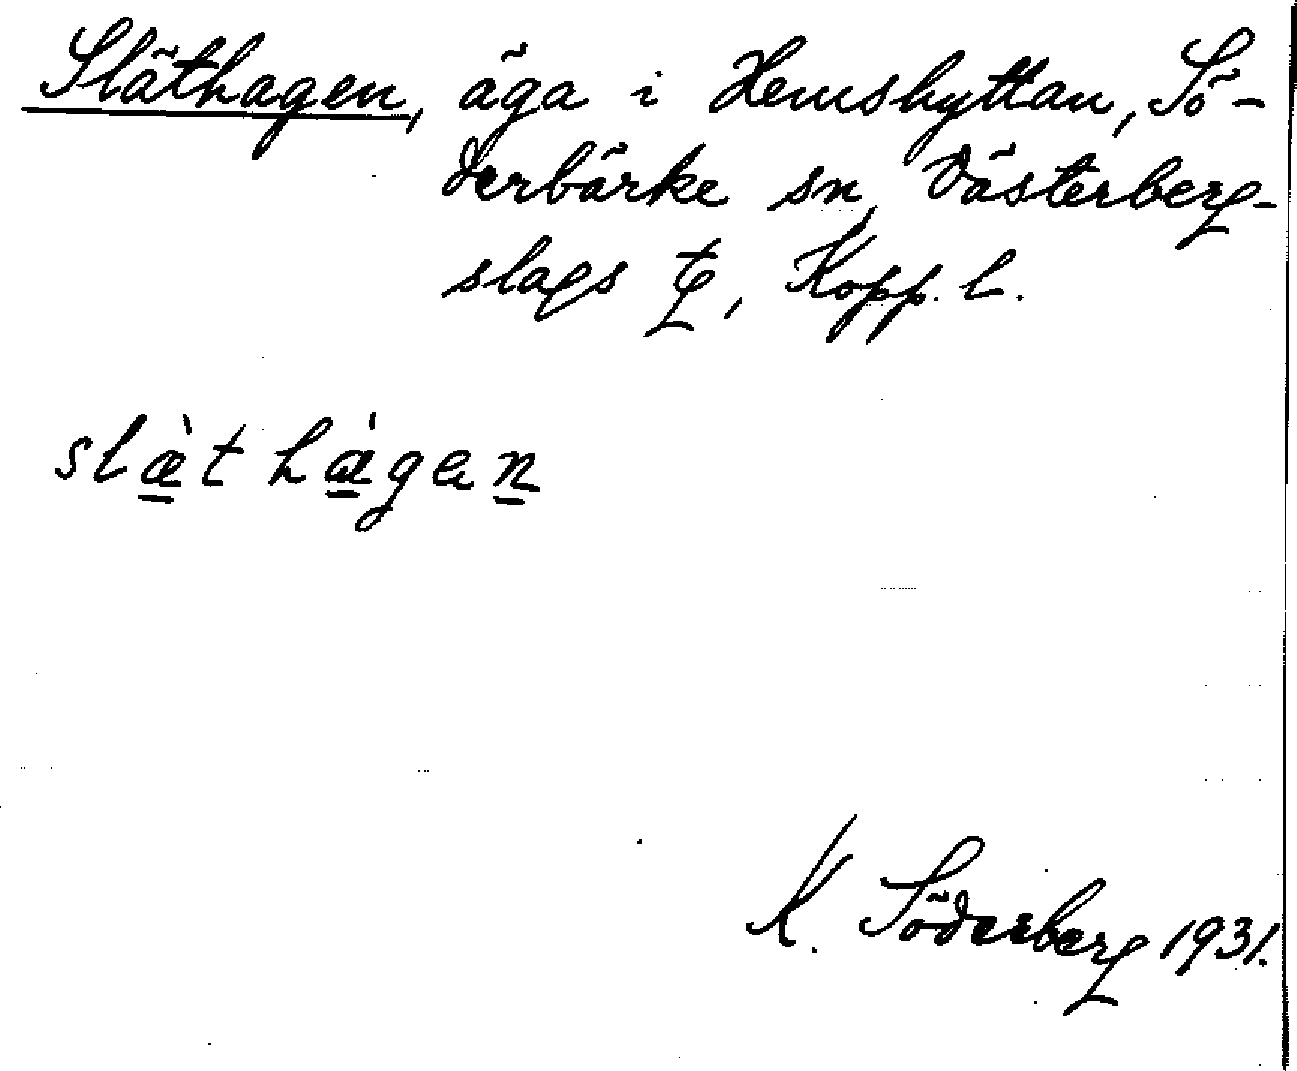 Släthagen, äga i Hemshyttan, Sö-
derbärke sn, Västerberg-
slags tg, Kopp. l.
slæ̀t hágen
K. Söderberg 1931.